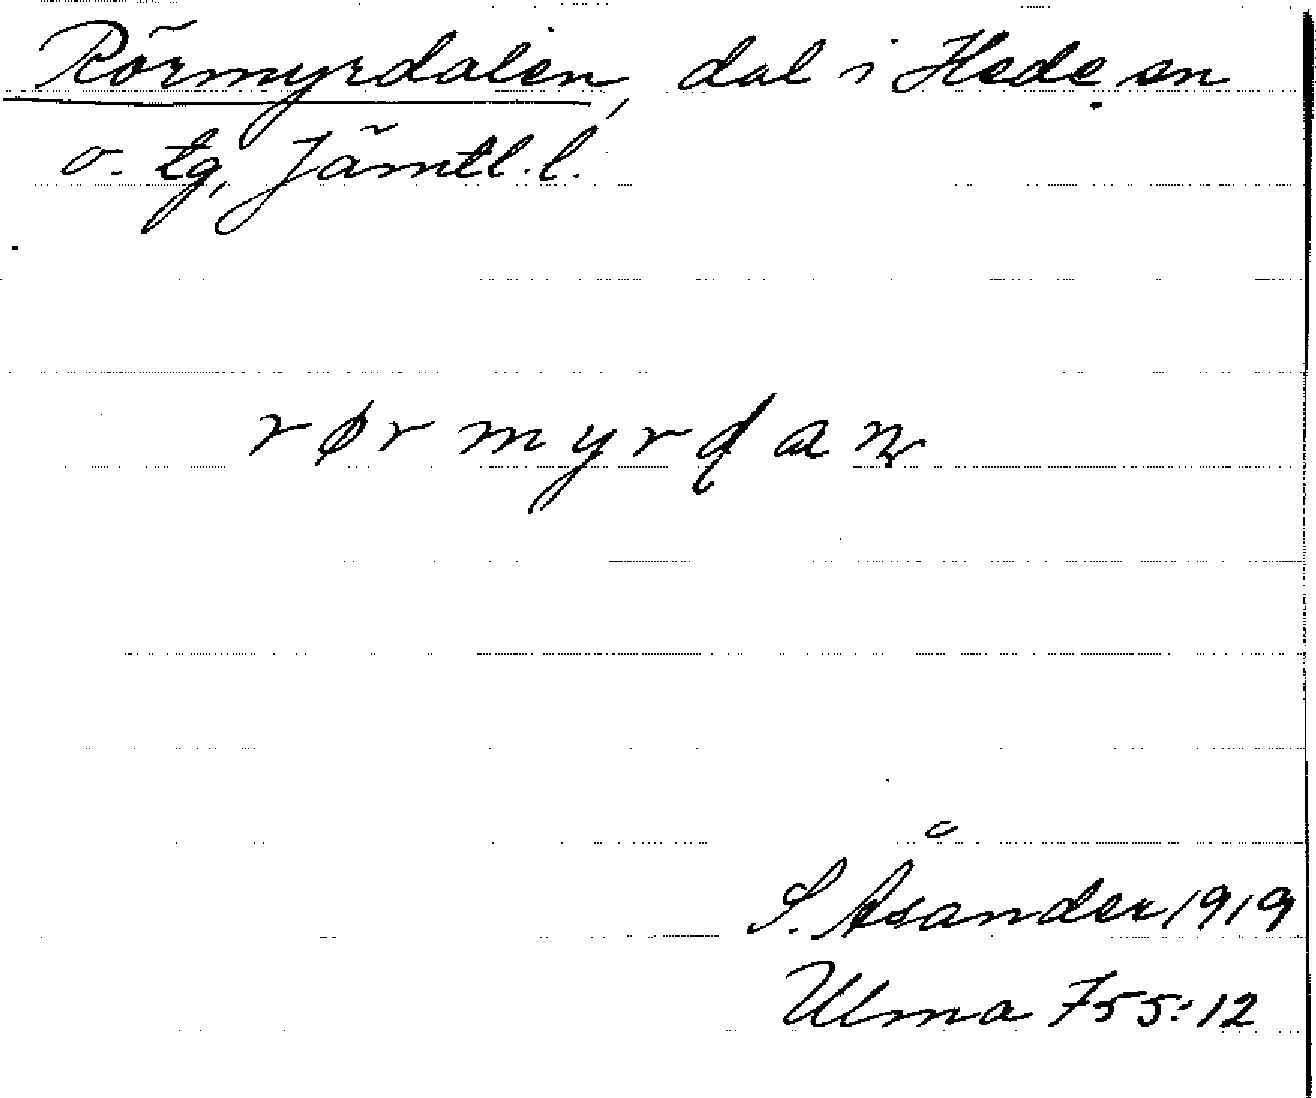 Rörmyrdalen, dal i Hede sn
o. tg, Jämtl. l.
rørmyrdan
S. Åsander 1919
Ulma 755:12